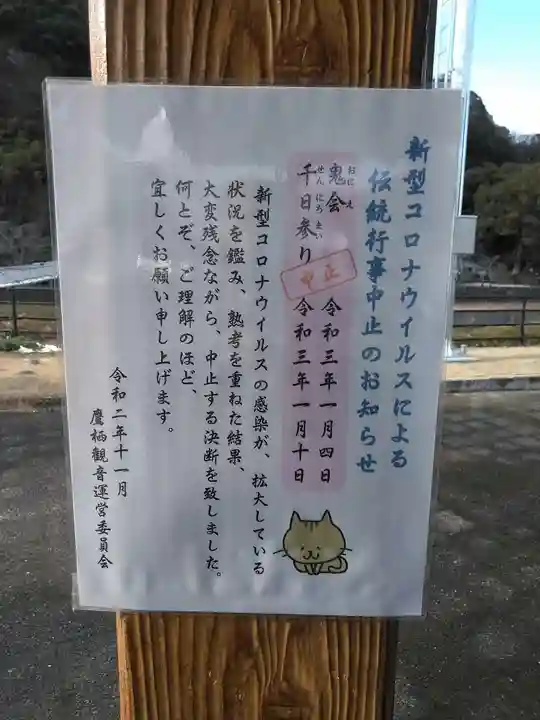 新型コロナウイルスによる
伝統行事中止のお知らせ
鬼会 令和三年一月四日
おにえ
千日参り 令和三年一月十日
せんにちまい
中止
新型コロナウイルスの感染が、拡大している
状況を鑑み、熟考を重ねた結果、
大変残念ながら、中止する決断を致しました。
何とぞ、ご理解のほど、
宜しくお願い申し上げます。
令和二年十一月
鷹栖観音運営委員会